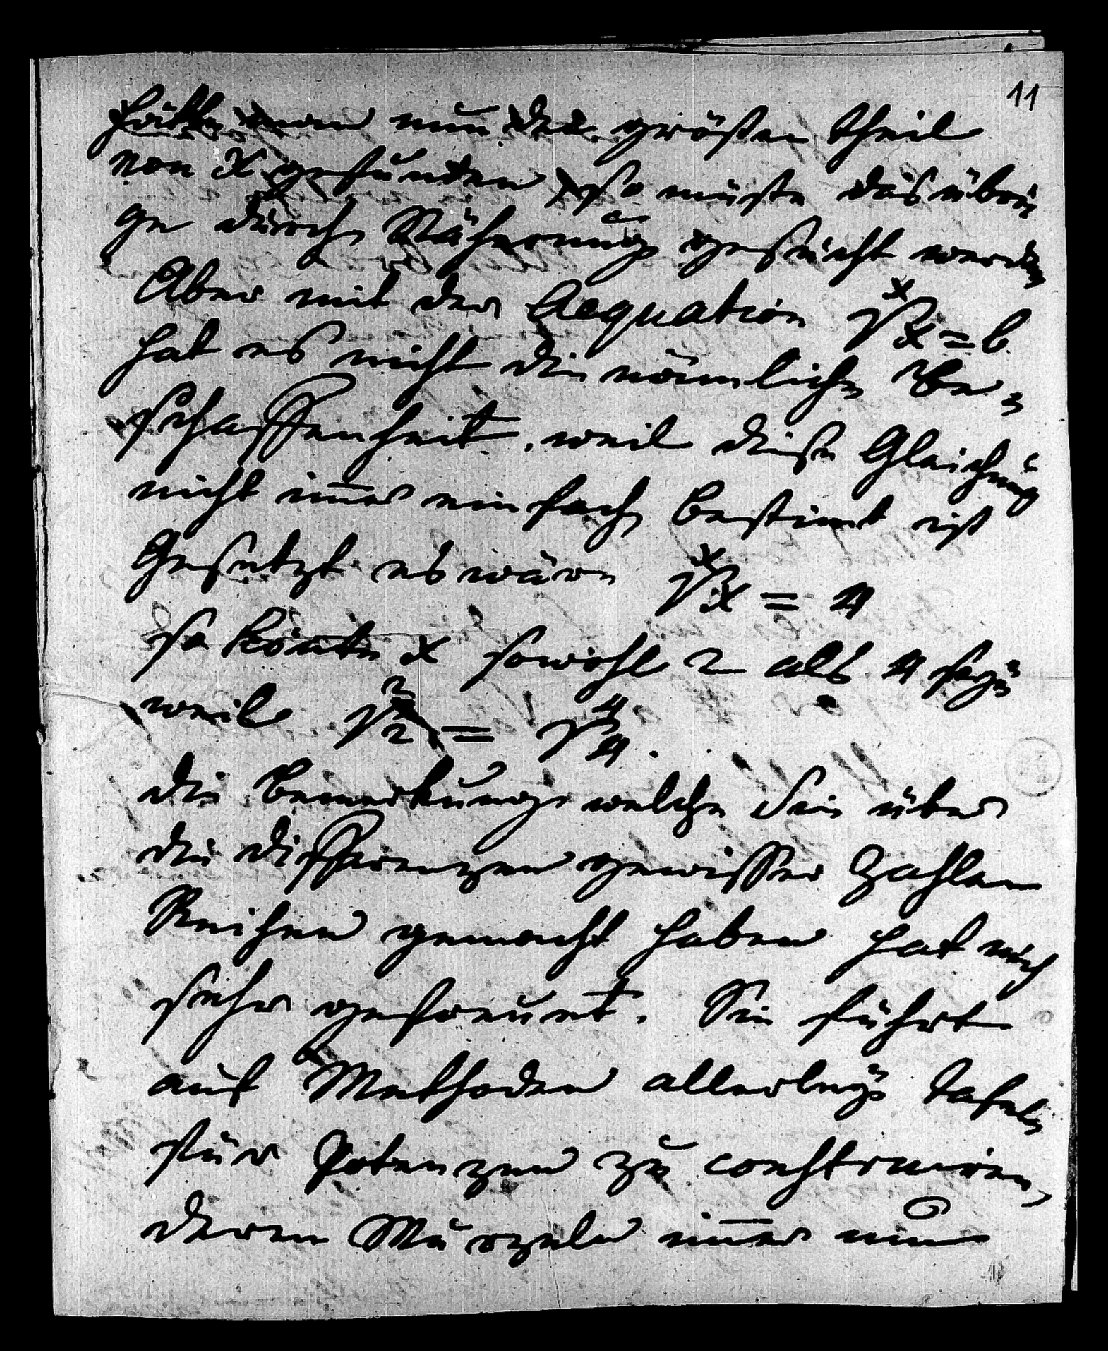 11
hätte man nun den größen theil
von x gefunden, so müste das übri
ge durch Näherung gesucht werden
Aber mit der Aequation √x = b
hat es nicht die nämliche Be-
schaffenheit, weil diese Gleichung
nicht im̄er einfach bestimt ist
Gesetzt es wäre √x = 4
so könte x sowohl 2 als 4 seyn
weil √2 = √4.
die Bemerkung welche Sie über
die differenzen gewisser Zahlen
Reihen gemacht haben hat mich
sehr gefreuet. Sie führt
auf Methoden allerley tafeln
für Potenzen zu construiren,
deren Wurzeln im̄er um